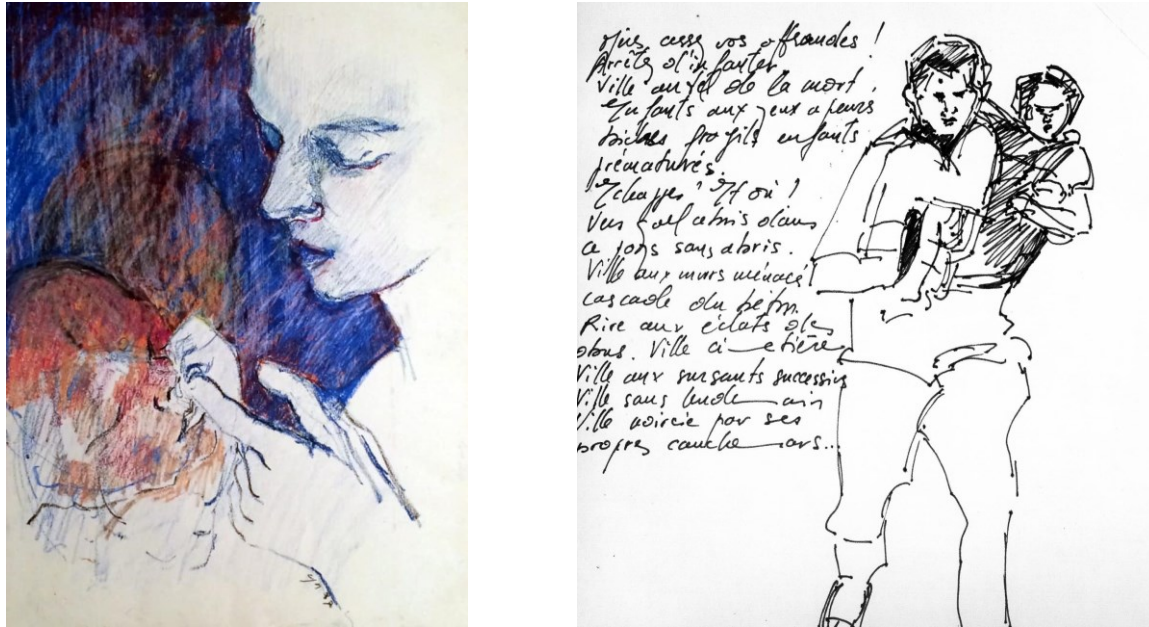 cessez vos offrandes !
Arrêtez d'infanter
Ville au fiel de la mort,
Enfants aux yeux apeurés
profils enfants
prématurés.
Echapper ! Et où !
Vers quel abris dans
ce pays sans abris.
Ville aux murs menacés
cascade du béton.
Rire aux éclats des
obus. Ville cimetière
Ville aux sursauts successifs
Ville sans lendemain
Ville noircie par ses
propres cauchemars...